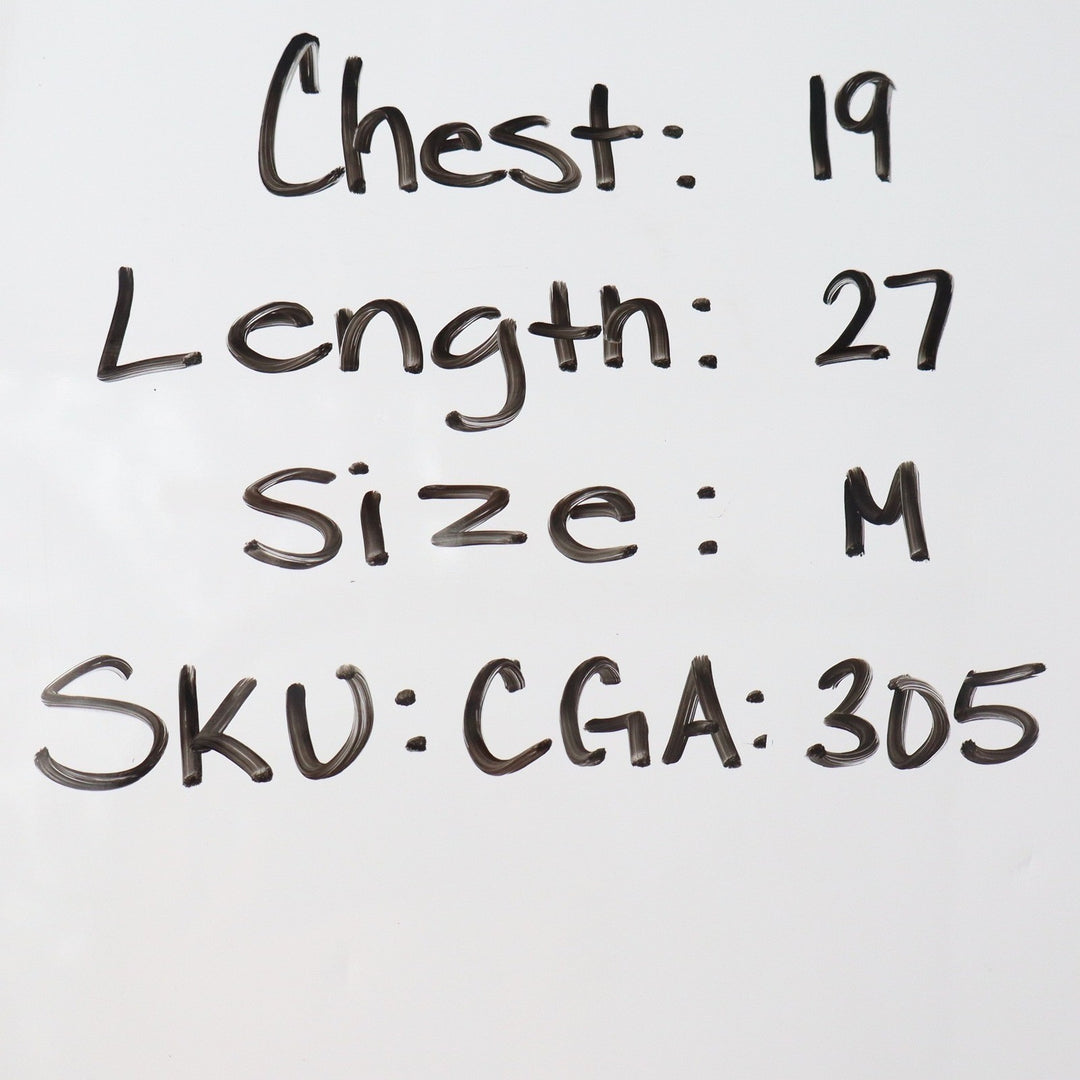 Chest: 19
Length: 27
Size: M
SKU: CGA: 305